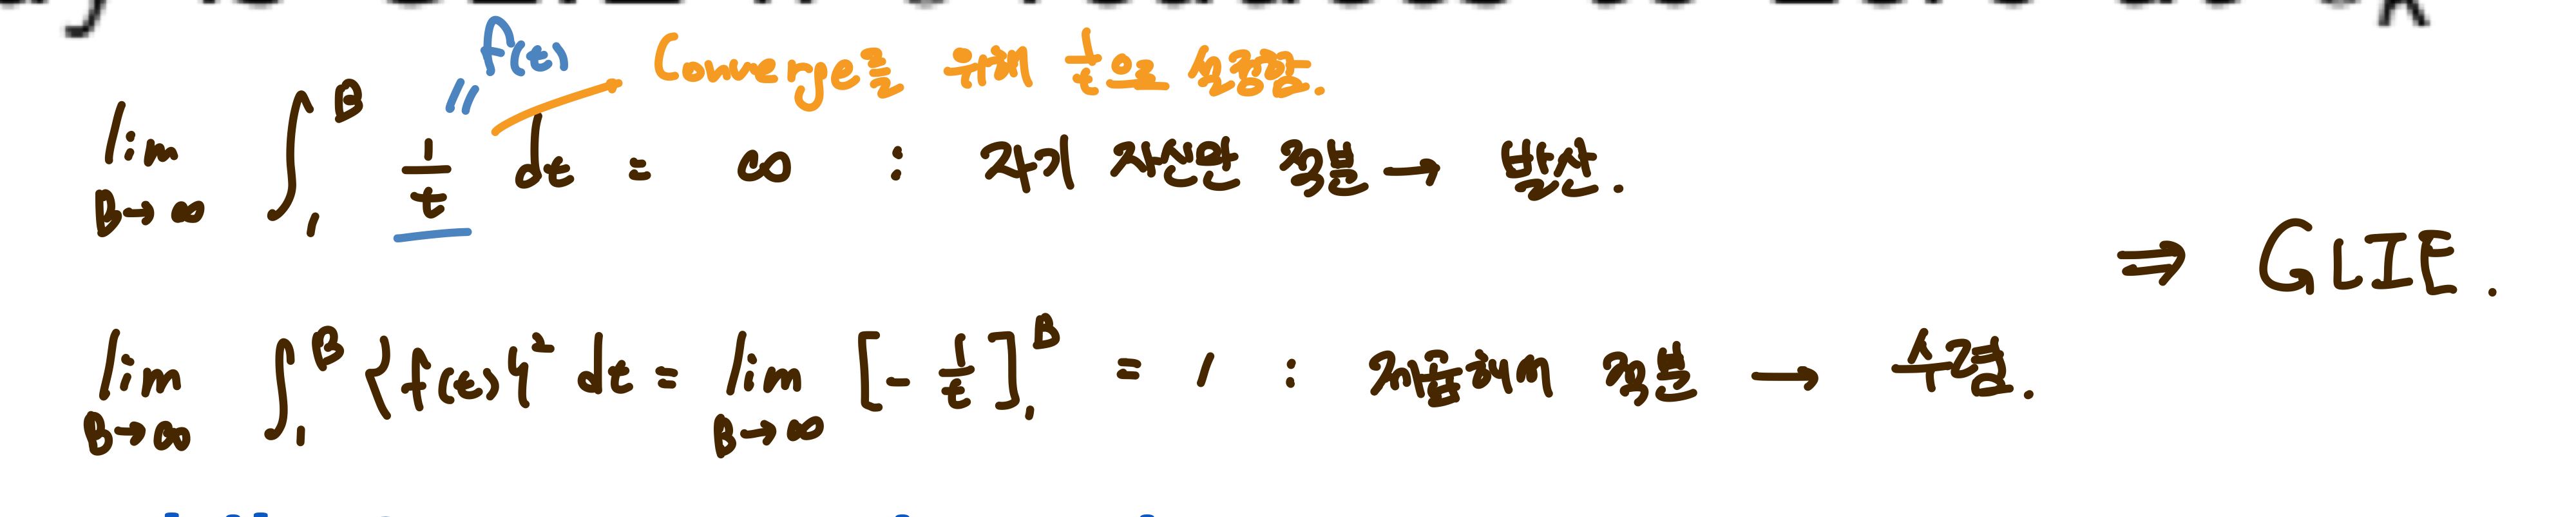 f(t) Converge를 위해 1/t으로 설정함.
lim B→∞ ∫₁ᴮ 1/t dt = ∞ : 자기 자신만 적분 → 발산.
⇒ GLIE.
lim B→∞ ∫₁ᴮ {f(t)}² dt = lim B→∞ [- 1/t]₁ᴮ = 1 : 제곱해서 적분 → 수렴.